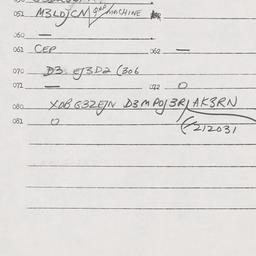 051 M3LDJCN GAP MACHINE
060 —
061 CEP 062 —
070 D3 EJ3D2 (306
071 — 072 0
080 XDBG3ZEJN D3MPOJ3RJAK3RN
081 0 212031